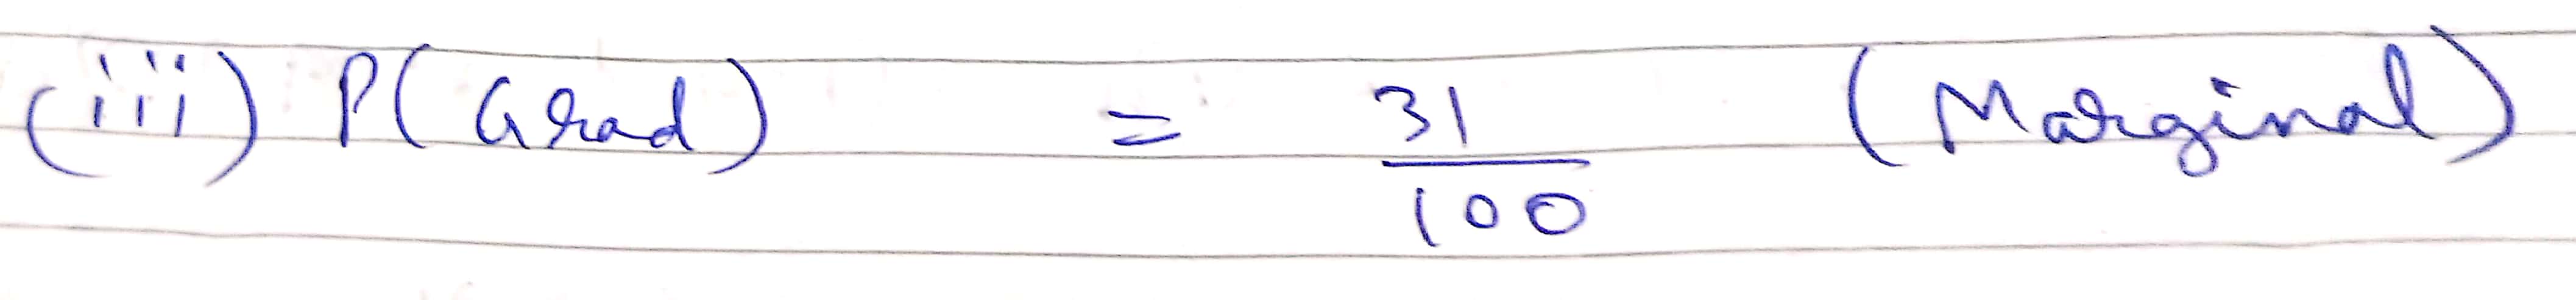 (iii) P(Grad) = 31/100 (Marginal)